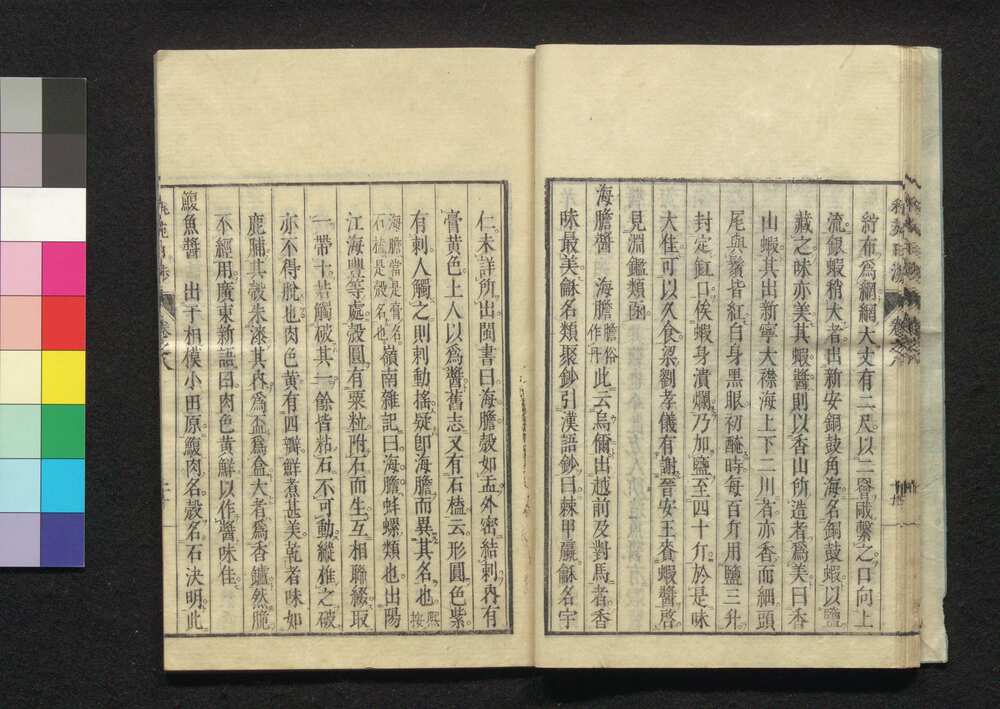 紵布爲網網大丈有二尺以二罾艇繫之口向上
流銀蝦稍大者出新安銅鼓角海名銅鼓蝦以鹽
藏之味亦美其蝦醬則以香山所造者爲美曰香
山蝦其出新寧大襟海上下二川者亦香而細頭
尾與鬚皆紅白身黑眼初醃時每百斤用鹽三斗
封定缸口俟蝦身潰爛乃加鹽至四十斤於是味
大佳可以久食梁劉孝儀有謝晉安王賚蝦醬啓
見淵鑑類函
海膽醬 海膽膽俗作丹此云烏儞出越前及對馬者香
味最美龢名類聚鈔引漢語鈔曰棘甲蠃龢名宇
仁未詳所出閩書曰海膽殼如盂外密結刺內有
膏黃色土人以爲醬舊志又有石榼云形圓色紫
有刺人觸之則刺動搖疑卽海膽而異其名也熙按
海膽當是膏名石榼是殼名也嶺南雜記曰海膽蚌螺類也出陽
江海豐等處殼圓有粟粒附石而生互相聯綴取
一帶十若觸破其一餘皆粘石不可動縱椎之破
亦不得脫也肉色黃有四瓣鮮煮甚美乾者味如
鹿脯其殼朱漆其內爲盃爲盒大者爲香鑪然脆
不經用廣東新語曰肉色黃鮮以作醬味佳
鰒魚醬 出于相模小田原鰒肉名殼名石決明此
卷之八